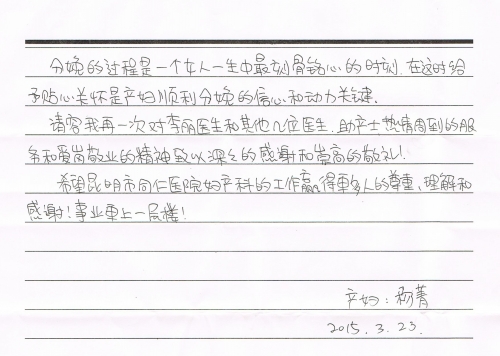 分娩的过程是一个女人一生中最刻骨铭心的时刻.在这时给
予贴心关怀是产妇顺利分娩的信心和动力关键.
请容我再一次对李丽医生和其他几位医生.助产士热情周到的服
务和爱岗敬业的精神致以深深的感谢和崇高的敬礼!
希望昆明市同仁医院妇产科的工作赢得更多人的尊重、理解和
感谢!事业更上一层楼!
产妇:菁
2015.3.23.